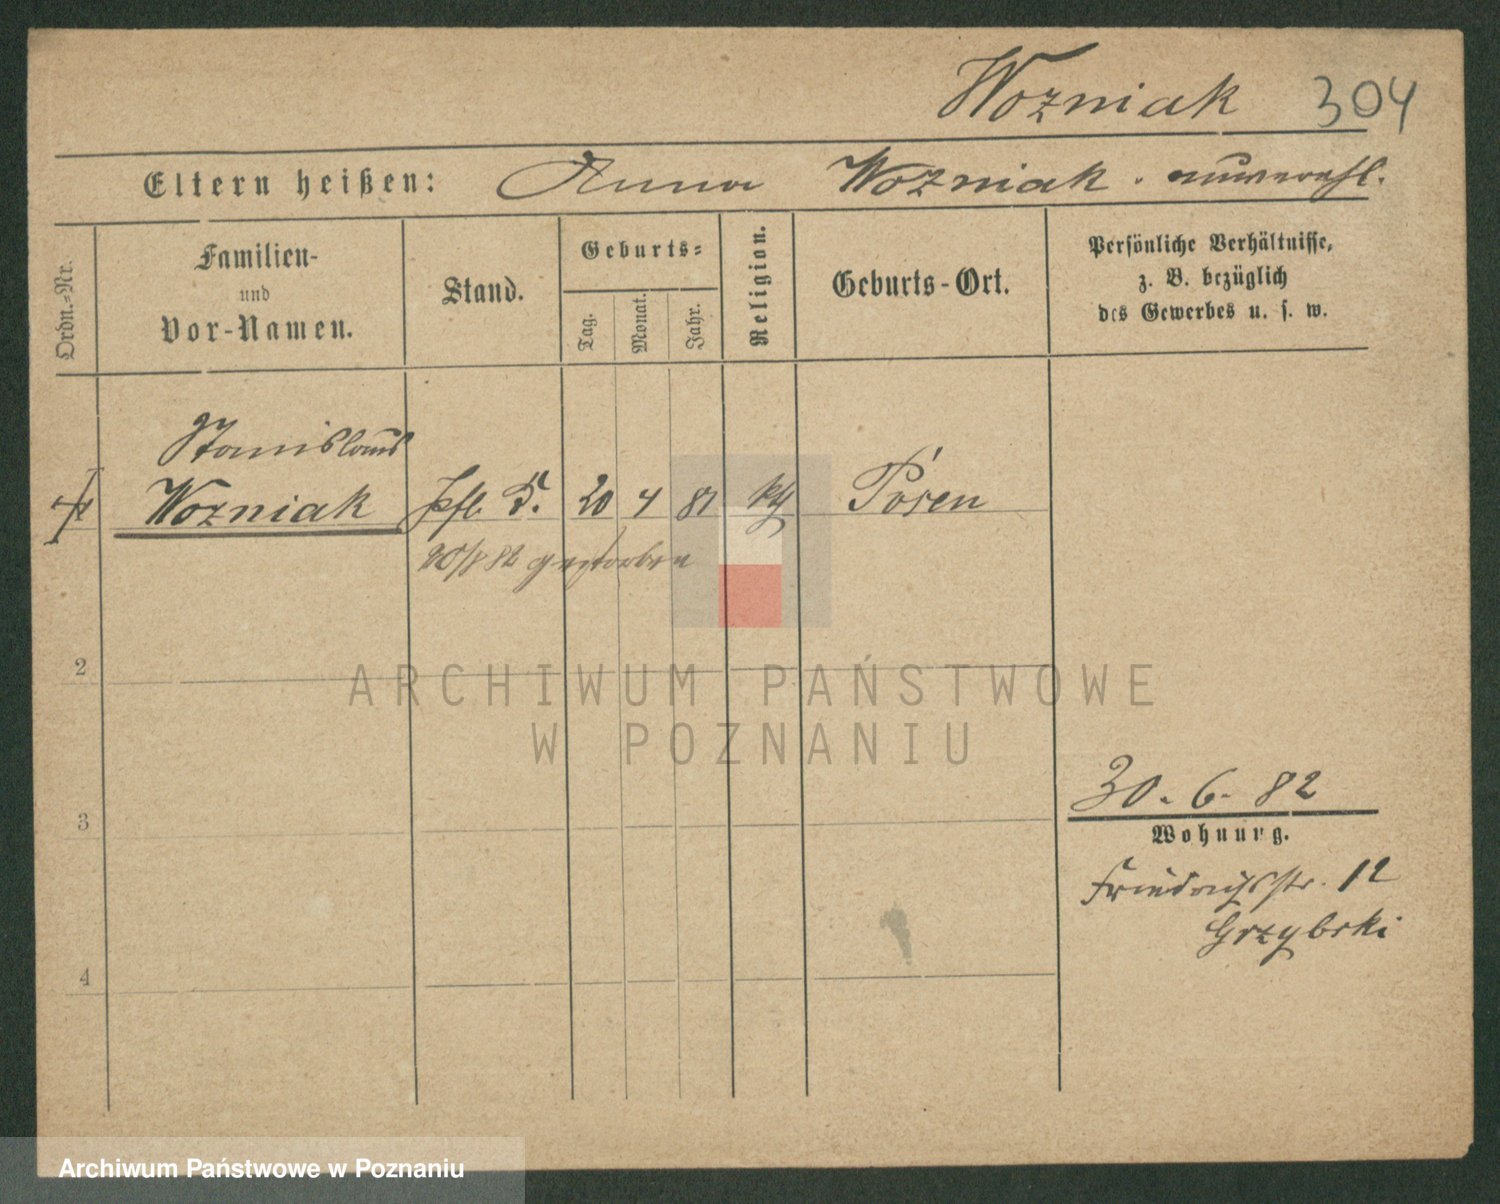 Wozniak 304
Eltern heißen: Anna Wozniak. unverehl.
Ordn.-Nr.
Familien-
und
Vor-Namen.
Stand.
Geburts-
Tag.
Monat.
Jahr.
Religion.
Geburts-Ort.
Persönliche Verhältnisse,
z. B. bezüglich
des Gewerbes u. s. w.
Stanislaus
1 Wozniak Pfl. S. 20 4 81 kth Posen
82 gestorben
2
ARCHIWUM PAŃSTWOWE
W POZNANIU
3
30. 6. 82
Wohnung.
Friedrichsstr. 12
Grzybski
4
Archiwum Państwowe w Poznaniu